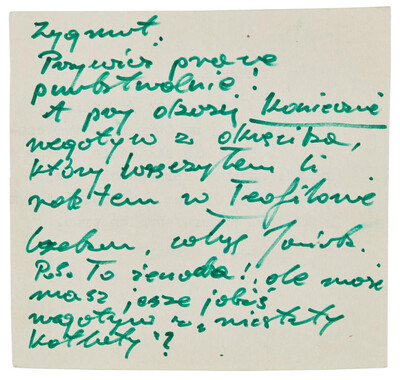 Zygmut.
Przywieź prace
punktualnie!
A przy okazji koniecznie
negatyw z okienka,
który wręczyłem Ci
rok temu w Teofilowie
czekam, Janiak.
P.S. To żenada!, ale może
masz jeszcze jakiś
negatyw z "niestety
kobiety"?